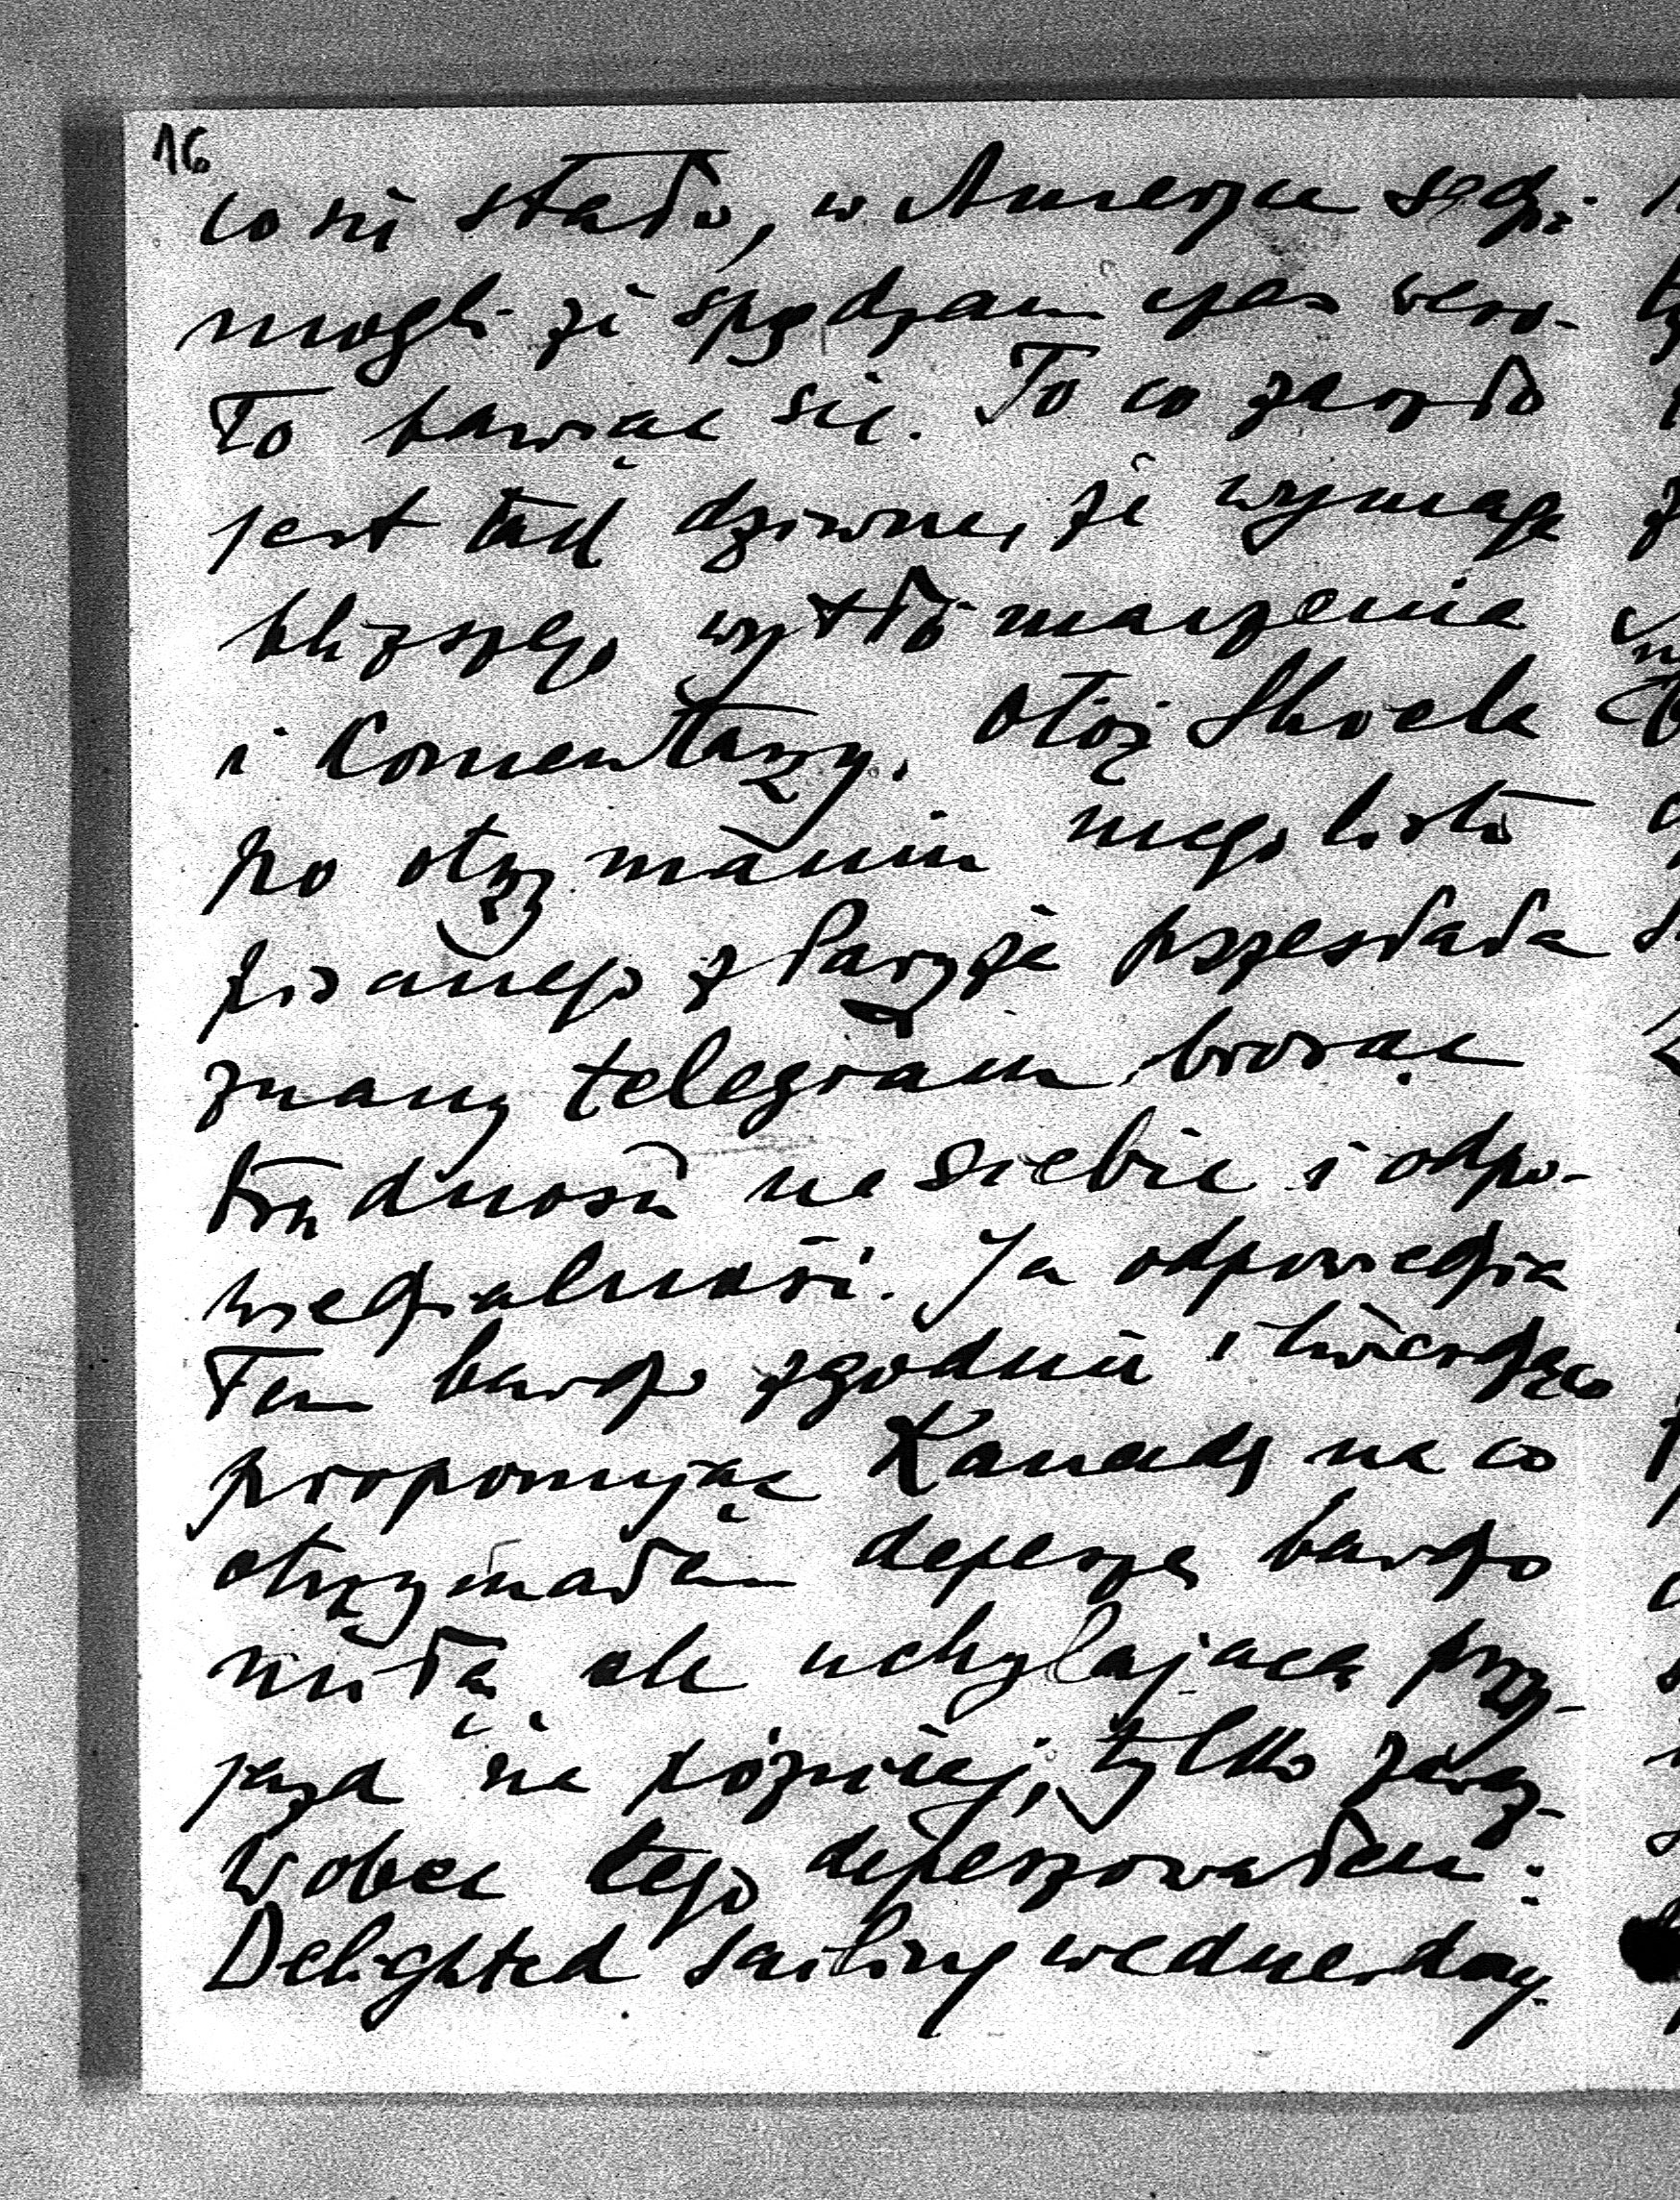 16
co się stało, w Ameryce sądzi
mogli że spędzam czas weso-
ło bawiąc się. To co zaszło
jest tak dziwne, że wymaga
bliższego wytłómaczenia
i Comentarzy. Otóż Skoda
po otrzymaniu mego listu
pisanego z Paryża przesłała
znany telegram biorąc
trudność na siebie i odpo-
wiedzialność. Ja odpowiedzia
łam bardzo zgodnie i twierdząco
proponując Kanadę na co
otrzymałam depeszę bardzo
miłą ale uchylającą przy-
jazd na później, tylko zaraz.
Wobec tego depeszowałam:
Delighted sailing wednesday